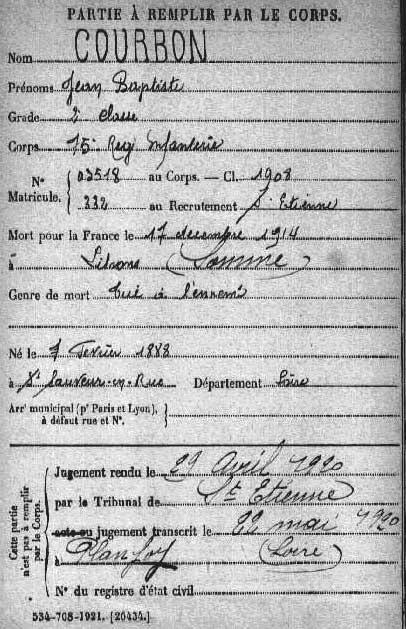 PARTIE À REMPLIR PAR LE CORPS.
Nom COURBON
Prénoms Jean Baptiste
Grade 2e classe
Corps 75e Reg Infanterie
N° Matricule. { 03518 au Corps. — Cl. 1908
332 au Recrutement St Etienne
Mort pour la France le 17 decembre 1914
à Lihons (Somme)
Genre de mort tué à l'ennemi
Né le 7 Fevrier 1888
à St Sauveur-en-Rue Département Loire
Arrt municipal (pr Paris et Lyon), à défaut rue et N°.
Cette partie n'est pas à remplir par le Corps.
Jugement rendu le 29 Avril 1920
par le Tribunal de St Etienne
acte ou jugement transcrit le 22 mai 1920
à Planfoy (Loire)
N° du registre d'état civil
534-708-1921. [26434.]